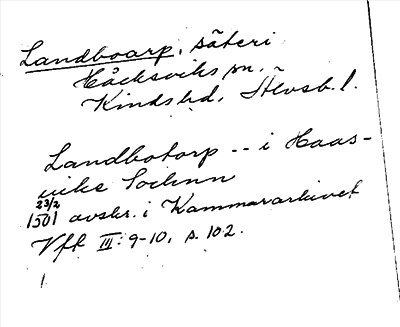 Landboarp, säteri
Håcksviks sn.,
Kinds hd, Älvsb. l.
Landbotorp -- i Haas-
uiks Sochnn
23/2
1501 avskr. i Kammararkivet
Vft III: 9-10, s. 102.